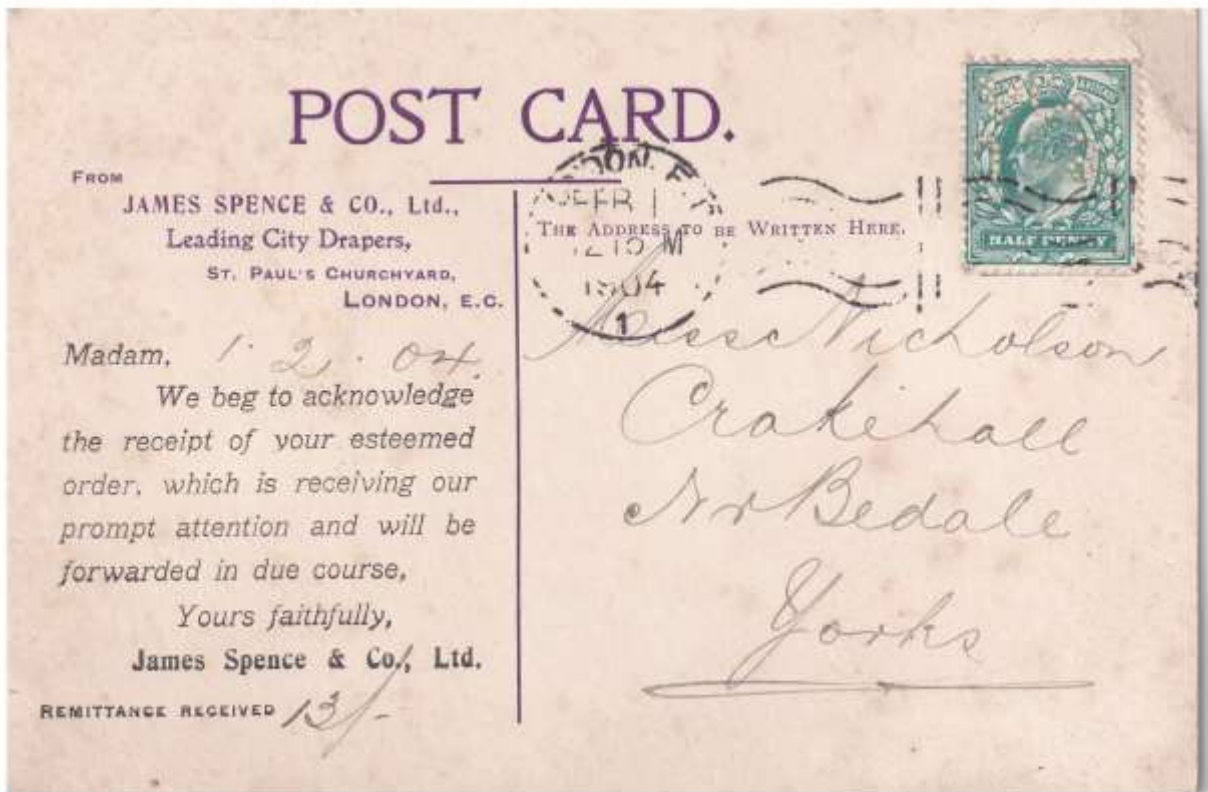 POST CARD.
FROM
JAMES SPENCE & CO., Ltd.,
Leading City Drapers,
ST. PAUL'S CHURCHYARD,
LONDON, E.C.
Madam, 1.2.04.
We beg to acknowledge
the receipt of your esteemed
order, which is receiving our
prompt attention and will be
forwarded in due course,
Yours faithfully,
James Spence & Co., Ltd.
REMITTANCE RECEIVED 13/-
FEB 1
12 15 M
1904
1
THE ADDRESS TO BE WRITTEN HERE.
HALF PENNY
Miss Nicholson
Crakehall
Nr Bedale
Yorks